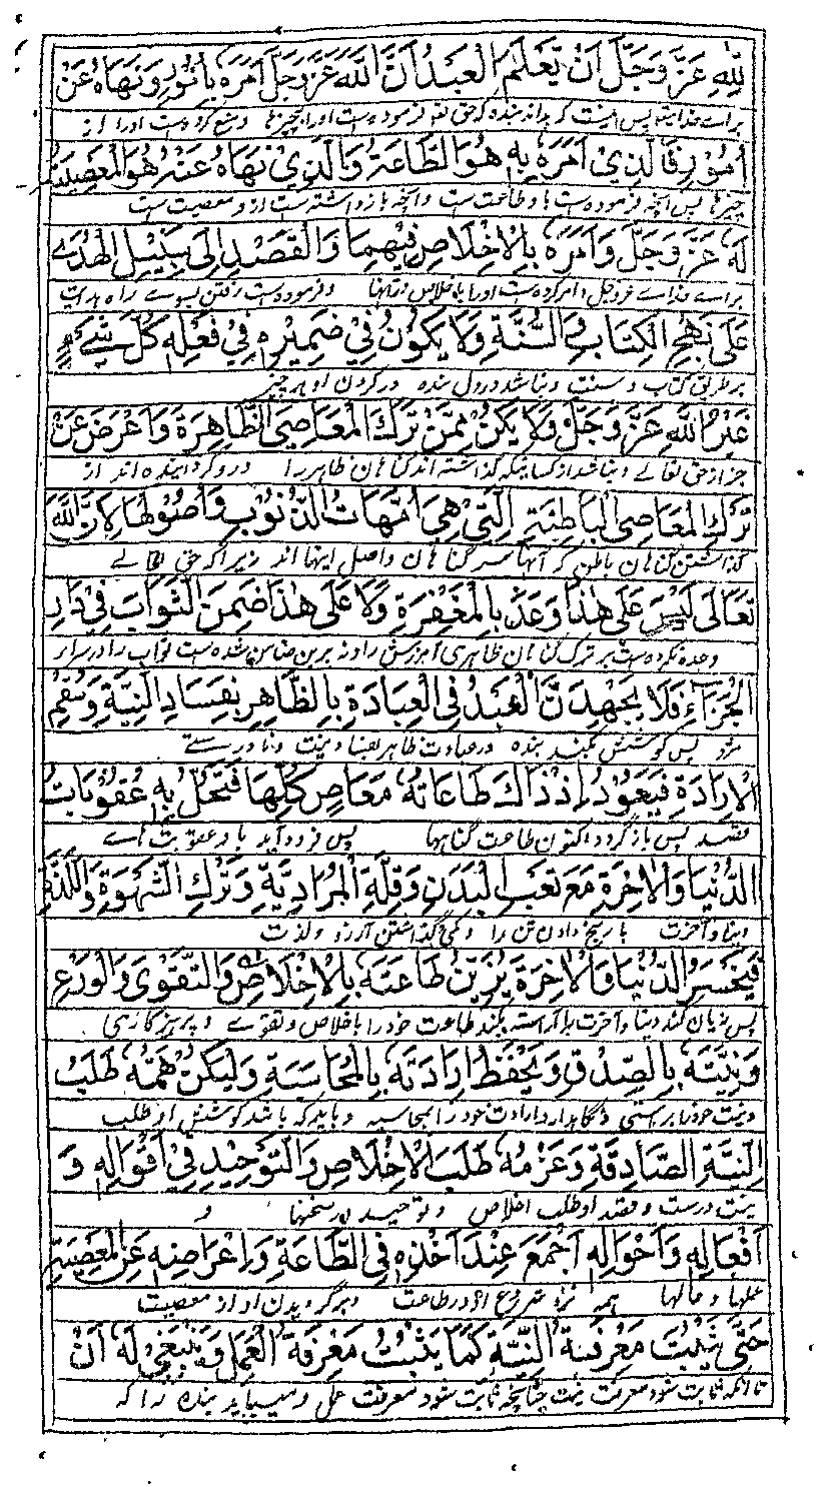 لِلّٰهِ عَزَّ وَجَلَّ اَنْ يَّعْلَمَ الْعَبْدُ اَنَّ اللّٰهَ عَزَّ وَجَلَّ اَمَرَهٗ بِاُمُوْرٍ وَنَهَاهُ عَنْ
براے خدایتعالی پس اینست که بداند بنده که حق تعالی فرموده است اورا بچیزها و منع کرده است اورا از
اُمُوْرٍ فَالَّذِيْ اَمَرَهٗ بِهٖ هُوَ الطَّاعَةُ وَالَّذِيْ نَهَاهُ عَنْهُ هُوَ الْمَعْصِيَةُ
چیزها پس آنچه فرموده است باو طاعت است و آنچه بازداشته است ازو معصیت است
لَهٗ عَزَّ وَجَلَّ وَاَمَرَهٗ بِالْاِخْلَاصِ فِيْهِمَا وَالْقَصْدِ اِلٰى سَبِيْلِ الْهُدٰى
براے خداے عزوجل و امر کرده است اورا باخلاص و فرموده است رفتن بسوے راه هدایت
عَلٰى نَهْجِ الْكِتَابِ وَالسُّنَّةِ وَلَا يَكُوْنُ فِيْ ضَمِيْرِهٖ فِيْ فِعْلِهٖ كُلَّ شَيْءٍ
بر طریق کتاب و سنت و نباشد در دل بنده در کردن او هر چیز
غَيْرُ اللّٰهِ عَزَّ وَجَلَّ وَلَا يَكُنْ مِمَّنْ تَرَكَ الْمَعَاصِيَ الظَّاهِرَةَ وَاَعْرَضَ عَنْ
جز از حق تعالے و نباشد از کسانیکه گذاشته اند گناهان ظاهر را و رو گردانیده اند از
تَرْكِ الْمَعَاصِي الْبَاطِنَةِ الَّتِيْ هِيَ اُمَّهَاتُ الذُّنُوْبِ وَاُصُوْلُهَا لِاَنَّ اللّٰهَ
گذاشتن گناهان باطن که آنها سر گناهان و اصل اینها اند زیرا که حق تعالے
تَعَالٰى لَيْسَ عَلٰى هٰذَا وَعَدَ بِالْمَغْفِرَةِ وَلَا عَلٰى هٰذَا ضَمِنَ الثَّوَابَ فِيْ دَارِ
وعده نکرده است بر ترک گناهان ظاهری آمرزش را و نه برین ضامن شده است ثواب را در سرای
الْجَزَاءِ فَلَا يَجْهِدَنَّ الْعَبْدُ فِي الْعِبَادَةِ بِالظَّاهِرِ بِفَسَادِ النِّيَّةِ وَسُقْمِ
پس کوشش نکند بنده در عبادت ظاهر بفساد نیت و نادرستے
الْاِرَادَةِ فَيَعُوْدُ اِذْ ذَاكَ طَاعَاتُهٗ مَعَاصٍ كُلُّهَا فَتَحُلُّ بِهٖ عُقُوْبَاتُ
قصد پس باز گردد اکنون طاعت گناهها پس فرود آید باو عقوبت هاے
الدُّنْيَا وَالْاٰخِرَةِ مَعَ تَعَبِ الْبَدَنِ وَقِلَّةِ الْمُرَادِيَّةِ وَتَرْكِ الشَّهْوَةِ وَاللَّذَّةِ
دنیا و آخرت با رنج دادن تن را و گذاشتن آرزو و لذت
فَيَخْسَرُ الدُّنْيَا وَالْاٰخِرَةَ يُزَيِّنُ طَاعَتَهٗ بِالْاِخْلَاصِ وَالتَّقْوٰى وَالْوَرَعِ
پس زیان کند دنیا و آخرت را آراسته بکند طاعت خود را باخلاص و تقوے و پرهیزگاری
وَنِيَّتَهٗ بِالصِّدْقِ وَيَحْفَظُ اِرَادَتَهٗ بِالْمُحَاسَبَةِ وَلْيَكُنْ هَمُّهٗ طَلَبُ
و نیت خود را براستی و نگاهدارد ارادت خود را بمحاسبه و باید که باشد کوشش او طلب
النِّيَّةِ الصَّادِقَةِ وَعَزْمُهٗ طَلَبَ الْاِخْلَاصِ وَالتَّوْحِيْدِ فِيْ اَقْوَالِهٖ وَ
نیت درست و قصد او طلب اخلاص و توحید در سخنها و
اَفْعَالِهٖ وَاَحْوَالِهٖ اَجْمَعَ عِنْدَ اَخْذِهٖ فِي الطَّاعَةِ وَاِعْرَاضِهٖ عَنِ الْمَعْصِيَةِ
عملها و حالها همه نزد شروع او در طاعت و برگردیدن او از معصیت
حَتّٰى يَثْبُتَ مَعْرِفَةُ النِّيَّةِ كَمَا يَثْبُتُ مَعْرِفَةُ الْعَمَلِ وَيَنْبَغِيْ لَهٗ اَنْ
تا آنکه ثابت شود معرفت نیت چنانچه ثابت شود معرفت عمل و میباید بنده را که